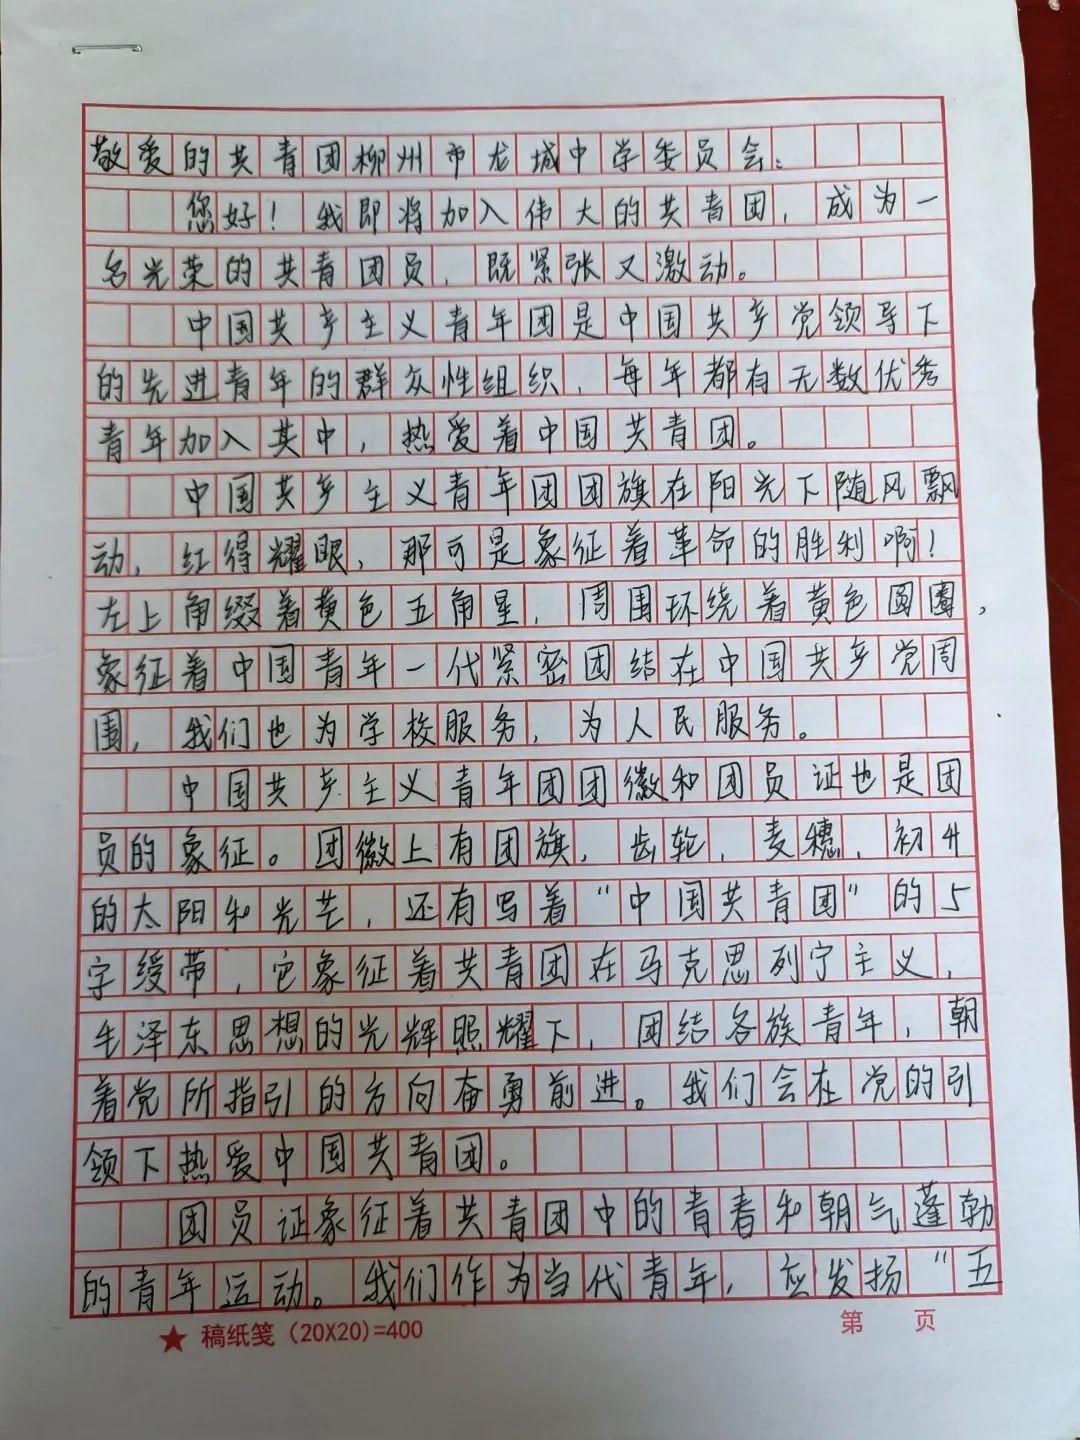 敬爱的共青团柳州市龙城中学委员会:
您好!我即将加入伟大的共青团,成为一
名光荣的共青团员,既紧张又激动。
中国共产主义青年团是中国共产党领导下
的先进青年的群众性组织,每年都有无数优秀
青年加入其中,热爱着中国共青团。
中国共产主义青年团团旗在阳光下随风飘
动,红得耀眼,那可是象征着革命的胜利啊!
左上角缀着黄色五角星,周围环绕着黄色圆圈,
象征着中国青年一代紧密团结在中国共产党周
围,我们也为学校服务,为人民服务。
中国共产主义青年团团徽和团员证也是团
员的象征。团徽上有团旗、齿轮、麦穗、初升
的太阳和光芒,还有写着“中国共青团”的5
字绶带,它象征着共青团在马克思列宁主义、
毛泽东思想的光辉照耀下,团结各族青年,朝
着党所指引的方向奋勇前进。我们会在党的引
领下热爱中国共青团。
团员证象征着共青团中的青春和朝气蓬勃
的青年运动。我们作为当代青年,应发扬“五
★ 稿纸笺(20X20)=400
第 页